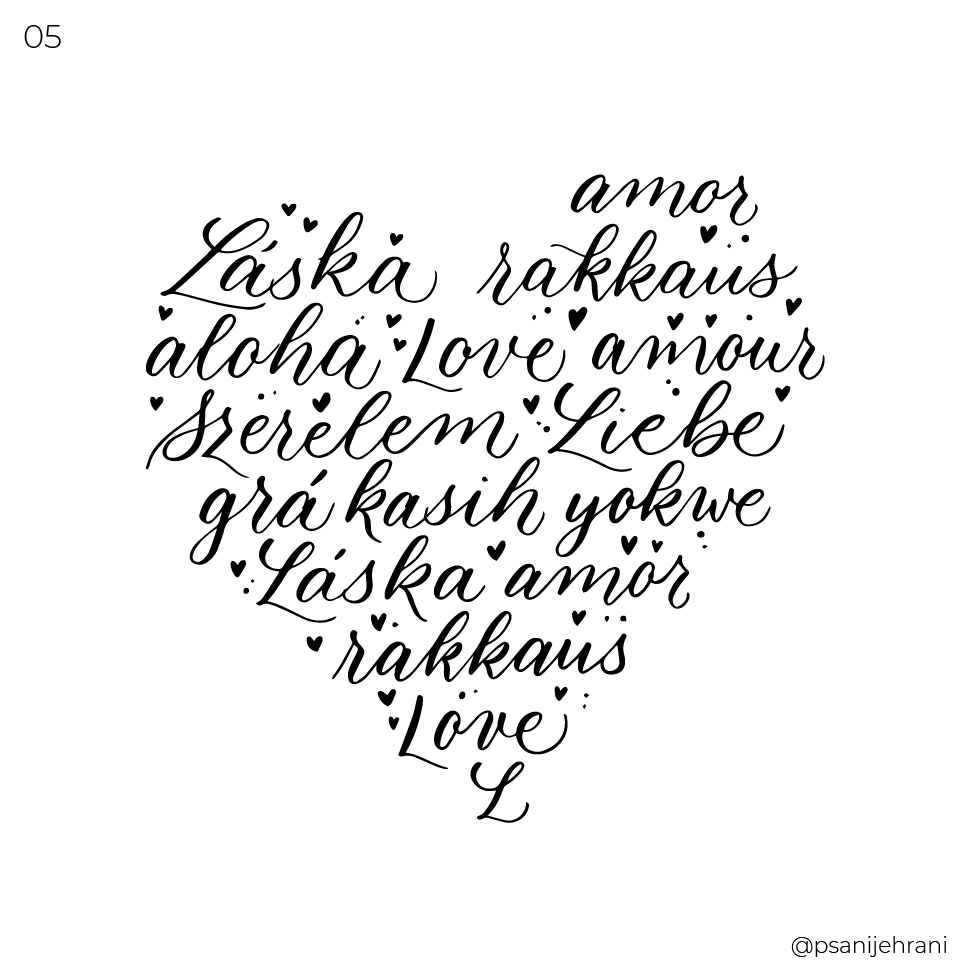 05
amor
Láska rakkaus
aloha Love amour
Szerelem Liebe
grá kasih yokwe
Láska amor
rakkaus
Love
L
@psanijehrani